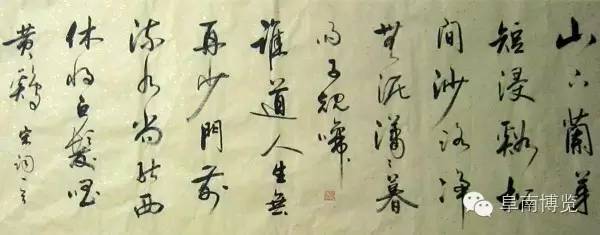 山下蘭芽
短浸谿松
間沙路净
無泥瀟〻暮
雨子規啼
誰道人生無
再少門前
流水尚能西
休將白髮唱
黄鷄 宋词一首
阜南博览